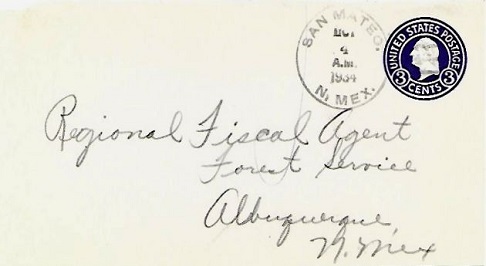 SAN MATEO.
4
A.M.
1934
N. MEX.
UNITED STATES POSTAGE
3 CENTS 3
Regional Fiscal Agent
Forest Service
Albuquerque,
N. Mex